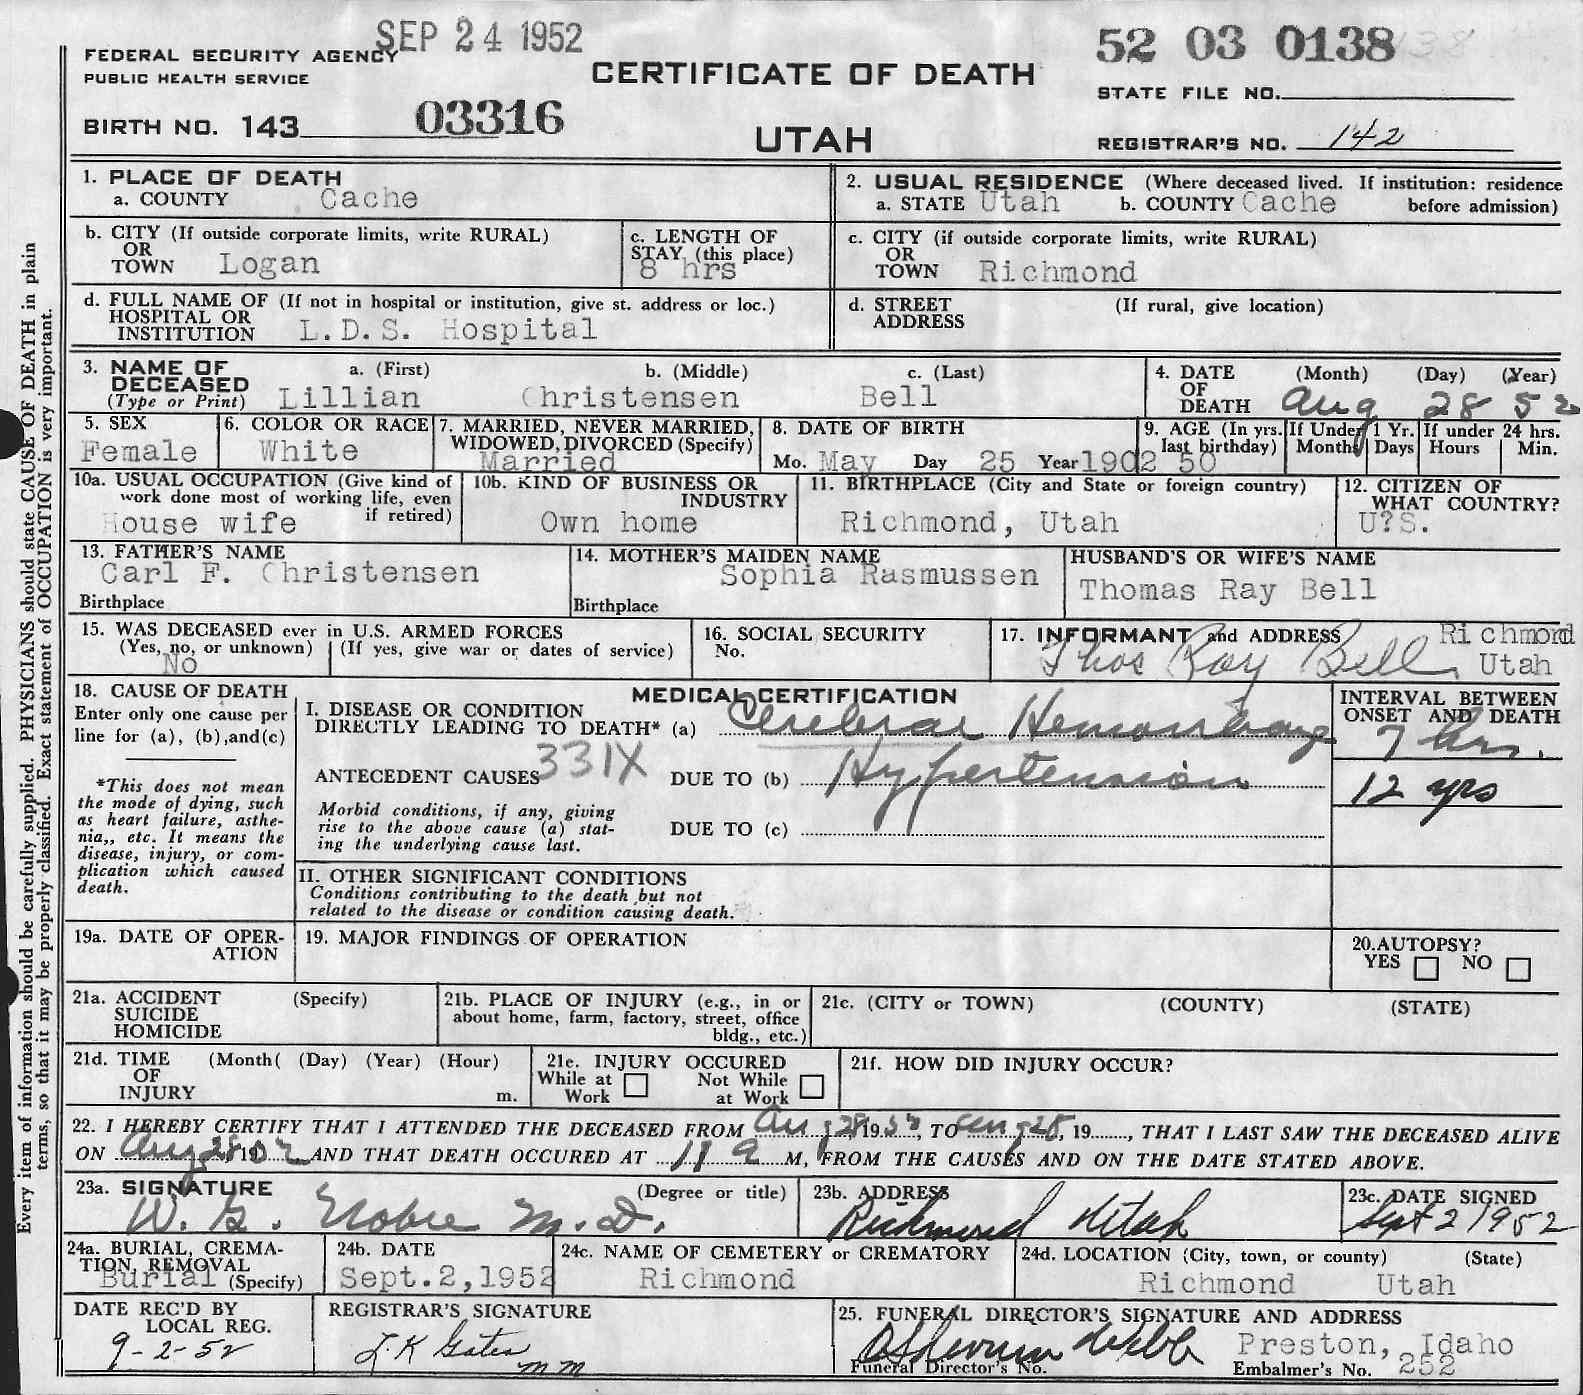 SEP 24 1952
52 03 0138
FEDERAL SECURITY AGENCY
PUBLIC HEALTH SERVICE
CERTIFICATE OF DEATH
STATE FILE NO.
BIRTH NO. 143 03316
UTAH
REGISTRAR'S NO. 142
Every item of information should be carefully supplied. PHYSICIANS should state CAUSE OF DEATH in plain
terms, so that it may be properly classified. Exact statement of OCCUPATION is very important.
1. PLACE OF DEATH
a. COUNTY Cache
2. USUAL RESIDENCE (Where deceased lived. If institution: residence
a. STATE Utah b. COUNTY Cache before admission)
b. CITY (If outside corporate limits, write RURAL)
OR
TOWN Logan
c. LENGTH OF
STAY (this place)
8 hrs
c. CITY (if outside corporate limits, write RURAL)
OR
TOWN Richmond
d. FULL NAME OF (If not in hospital or institution, give st. address or loc.)
HOSPITAL OR
INSTITUTION L.D.S. Hospital
d. STREET (If rural, give location)
ADDRESS
3. NAME OF a. (First) b. (Middle) c. (Last)
DECEASED
(Type or Print) Lillian Christensen Bell
4. DATE (Month) (Day) (Year)
OF
DEATH Aug 28 52
5. SEX
Female
6. COLOR OR RACE
White
7. MARRIED, NEVER MARRIED,
WIDOWED, DIVORCED (Specify)
Married
8. DATE OF BIRTH
Mo. May Day 25 Year 1902
9. AGE (In yrs.
last birthday)
50
If Under 1 Yr.
Months Days
If under 24 hrs.
Hours Min.
10a. USUAL OCCUPATION (Give kind of
work done most of working life, even
if retired)
House wife
10b. KIND OF BUSINESS OR
INDUSTRY
Own home
11. BIRTHPLACE (City and State or foreign country)
Richmond, Utah
12. CITIZEN OF
WHAT COUNTRY?
U?S.
13. FATHER'S NAME
Carl F. Christensen
Birthplace
14. MOTHER'S MAIDEN NAME
Sophia Rasmussen
Birthplace
HUSBAND'S OR WIFE'S NAME
Thomas Ray Bell
15. WAS DECEASED ever in U.S. ARMED FORCES
(Yes, no, or unknown) (If yes, give war or dates of service)
No
16. SOCIAL SECURITY
No.
17. INFORMANT and ADDRESS Richmond
Thos Ray Bell Utah
18. CAUSE OF DEATH
Enter only one cause per
line for (a), (b),and(c)
*This does not mean
the mode of dying, such
as heart failure, asthe-
nia,, etc. It means the
disease, injury, or com-
plication which caused
death.
MEDICAL CERTIFICATION
I. DISEASE OR CONDITION
DIRECTLY LEADING TO DEATH* (a) Cerebral Hemorrhage
ANTECEDENT CAUSES 331X DUE TO (b) Hypertension
Morbid conditions, if any, giving
rise to the above cause (a) stat-
ing the underlying cause last.
DUE TO (c)
INTERVAL BETWEEN
ONSET AND DEATH
7 hrs.
12 yrs
II. OTHER SIGNIFICANT CONDITIONS
Conditions contributing to the death but not
related to the disease or condition causing death.
19a. DATE OF OPER-
ATION
19. MAJOR FINDINGS OF OPERATION
20.AUTOPSY?
YES NO
21a. ACCIDENT (Specify)
SUICIDE
HOMICIDE
21b. PLACE OF INJURY (e.g., in or
about home, farm, factory, street, office
bldg., etc.)
21c. (CITY or TOWN) (COUNTY) (STATE)
21d. TIME (Month( (Day) (Year) (Hour)
OF
INJURY m.
21e. INJURY OCCURED
While at Work Not While at Work
21f. HOW DID INJURY OCCUR?
22. I HEREBY CERTIFY THAT I ATTENDED THE DECEASED FROM Aug 28 1952, TO Aug 28, 19......, THAT I LAST SAW THE DECEASED ALIVE
ON Aug 28, 1952 AND THAT DEATH OCCURED AT 11 a M, FROM THE CAUSES AND ON THE DATE STATED ABOVE.
23a. SIGNATURE (Degree or title)
W. G. Noble M.D.
23b. ADDRESS
Richmond Utah
23c. DATE SIGNED
Sept 2 1952
24a. BURIAL, CREMA-
TION, REMOVAL
Burial (Specify)
24b. DATE
Sept.2,1952
24c. NAME OF CEMETERY or CREMATORY
Richmond
24d. LOCATION (City, town, or county) (State)
Richmond Utah
DATE REC'D BY
LOCAL REG.
9-2-52
REGISTRAR'S SIGNATURE
Gates
mm
25. FUNERAL DIRECTOR'S SIGNATURE AND ADDRESS
Webb Preston, Idaho
Funeral Director's No. Embalmer's No. 252